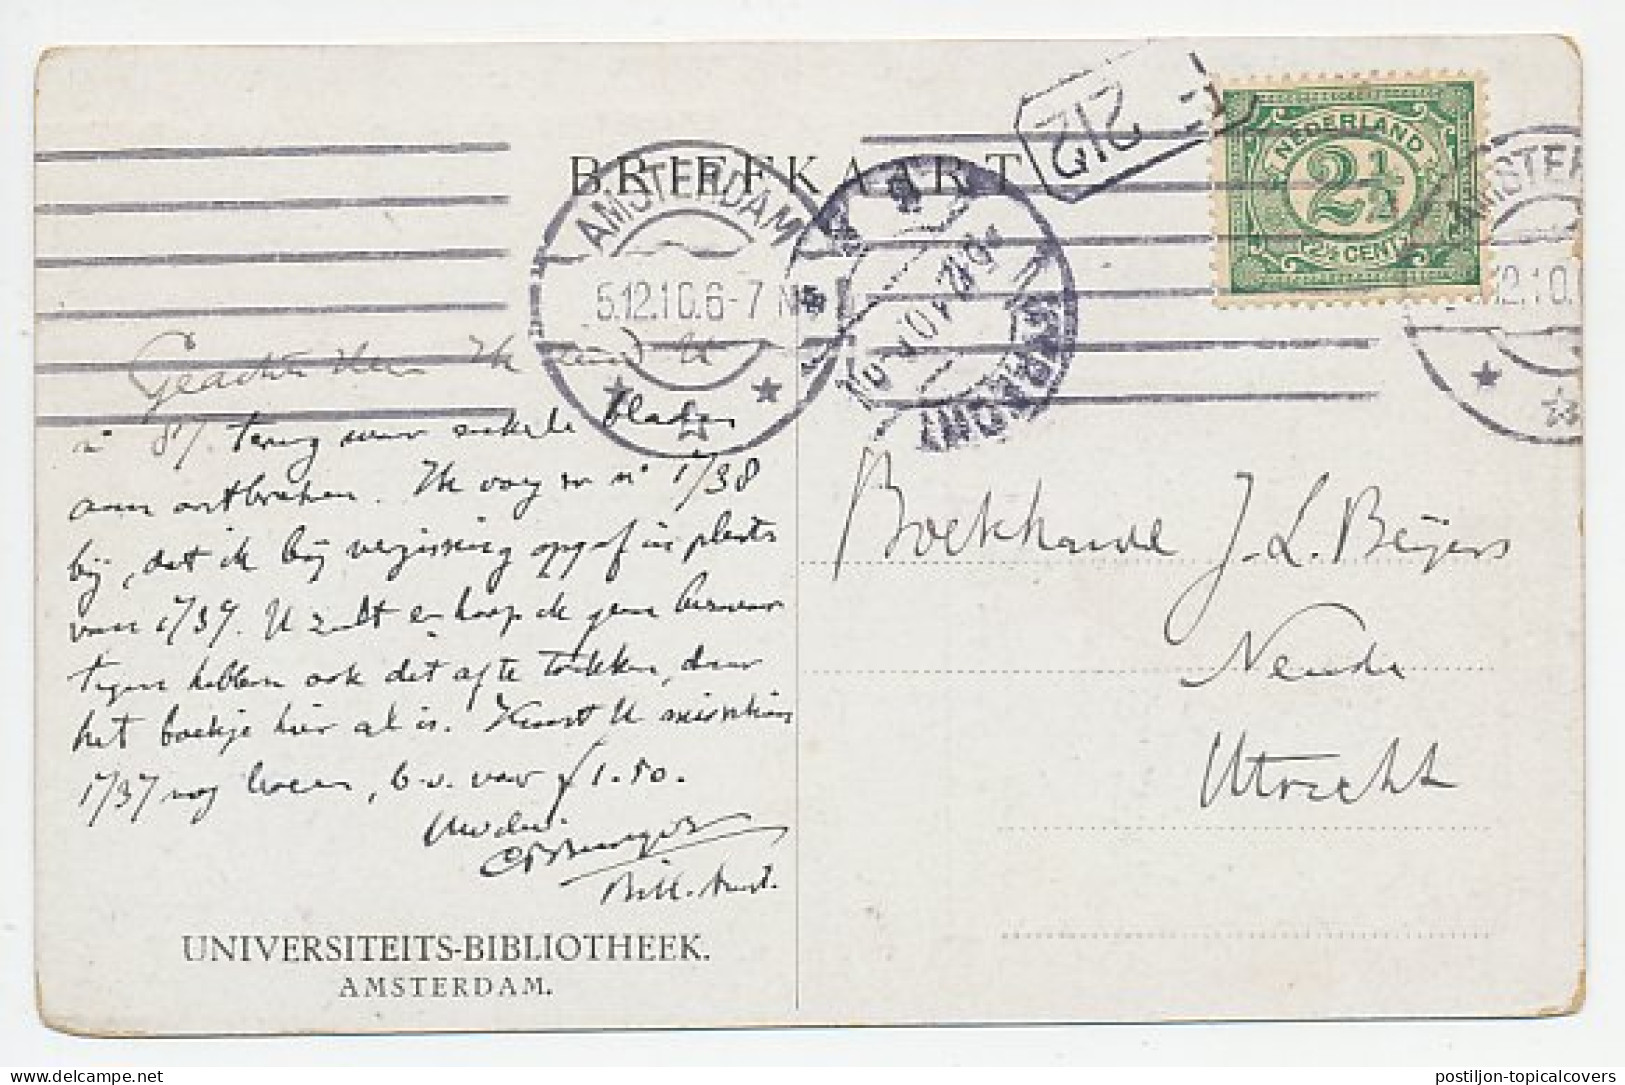 BRIEFKAART
T 2½
NEDERLAND
2½
2½ CENT
AMSTERDAM
5.12.10.6-7 N
AMSTER
.12.10.
Geachte Heer Ik zend U
n° 87. terug waar enkele bladen
aan ontbreken. Ik voeg er n° 1738
bij, dat ik bij vergissing opgaf in plaats
van 1739. U zult er hoop ik geen bezwaar
tegen hebben ook dit af te trekken, daar
het boekje hier al is. Kunt U misschien
1737 nog leveren, b.v. voor f 1.50.
Uw dw.
CPBurger
Bibl. Amst.
Boekhandel J.L. Beijers
Neude
Utrecht
UNIVERSITEITS-BIBLIOTHEEK.
AMSTERDAM.
postiljon-topicalcovers